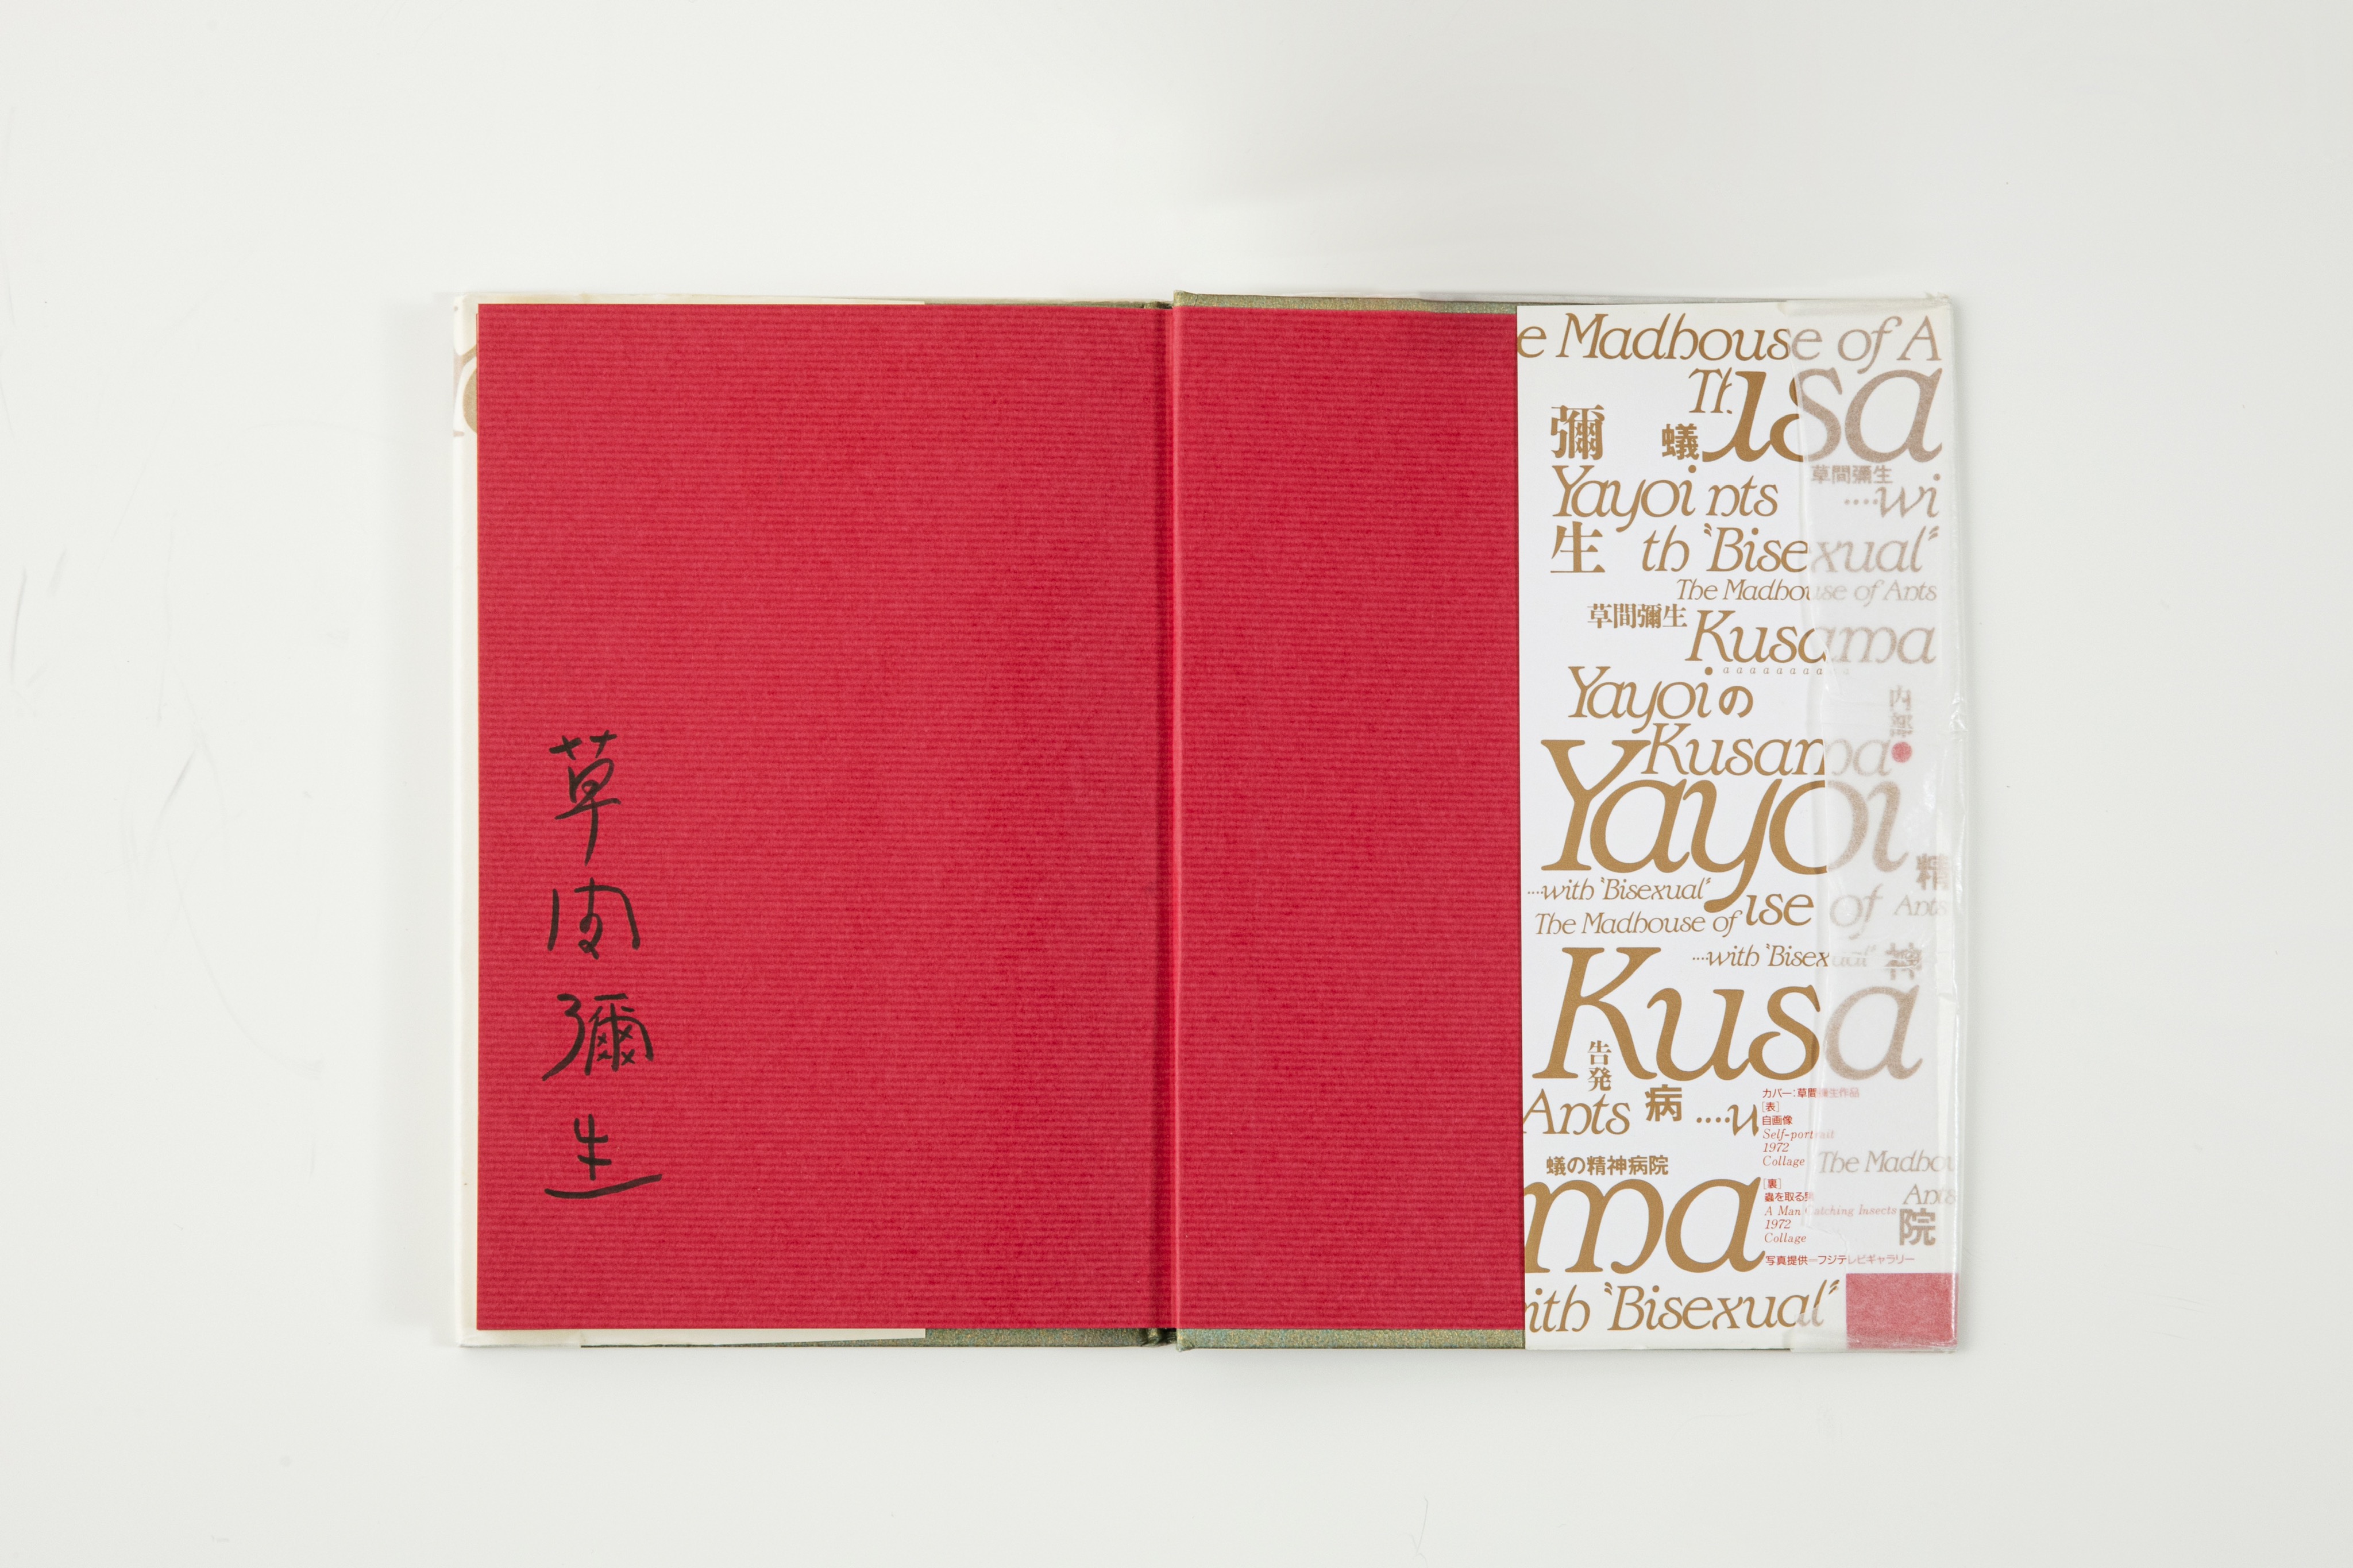 草间彌生
e Madhouse of A
Th
usa
彌
蟻
草間彌生
Yayoi nts
....wi
生
th "Bisexual"
The Madhouse of Ants
草間彌生
Kusama
a a a a a a a a
Yayoi の
内部
Kusama
Yayoi
精
....with "Bisexual"
The Madhouse of
use of
Ants
....with "Bisexual"
神
Kusa
告発
Ants
病
....w
カバー:草間彌生作品
[表]
自画像
Self-portrait
1972
Collage
The Madhou
蟻の精神病院
ma
[裏]
蟲を取る男
A Man Catching Insects
1972
Collage
Ants
院
写真提供—フジテレビギャラリー
ith "Bisexual"